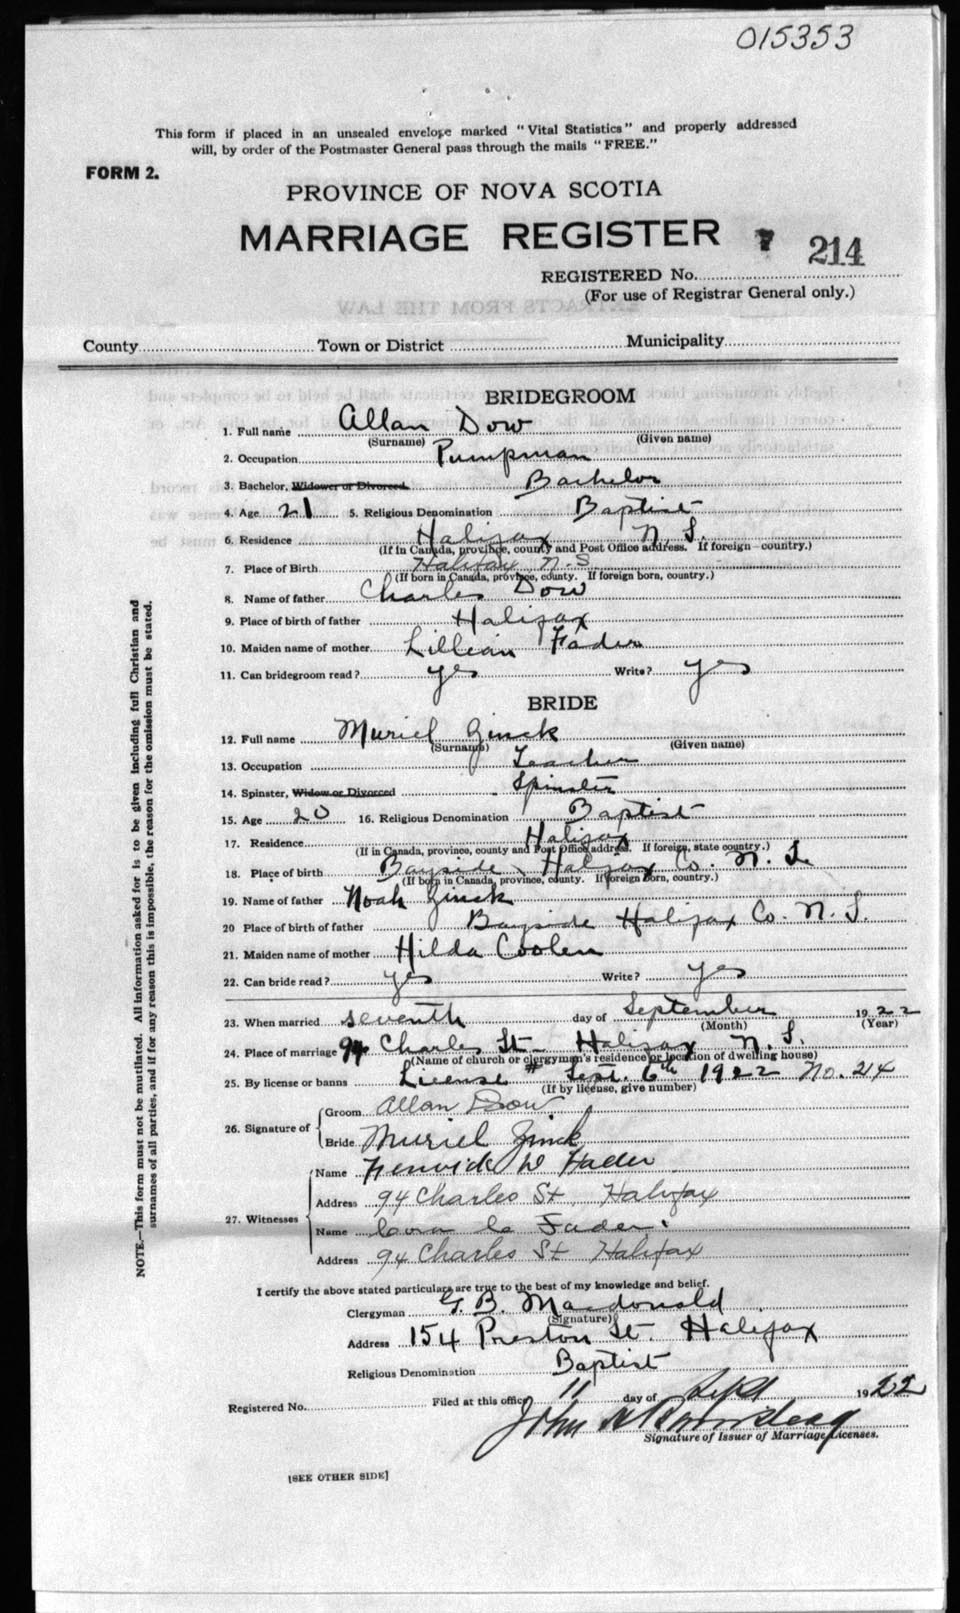 015353
This form if placed in an unsealed envelope marked "Vital Statistics" and properly addressed
will, by order of the Postmaster General pass through the mails "FREE."
FORM 2.
PROVINCE OF NOVA SCOTIA
MARRIAGE REGISTER 214
REGISTERED No.
(For use of Registrar General only.)
County Town or District Municipality
BRIDEGROOM
1. Full name Allan Dow
(Surname) (Given name)
2. Occupation Pumpman
3. Bachelor, Widower or Divorced. Bachelor
4. Age 21 5. Religious Denomination Baptist
6. Residence Halifax N.S.
(If in Canada, province, county and Post Office address. If foreign country.)
7. Place of Birth Halifax N.S.
(If born in Canada, province, county. If foreign born, country.)
8. Name of father Charles Dow
9. Place of birth of father Halifax
10. Maiden name of mother Lillian Fader
11. Can bridegroom read? yes Write? yes
BRIDE
12. Full name Muriel Zinck
(Surname) (Given name)
13. Occupation Teacher
14. Spinster, Widow or Divorced Spinster
15. Age 20 16. Religious Denomination Baptist
17. Residence Halifax
(If in Canada, province, county and Post Office address. If foreign, state country.)
18. Place of birth Bayside Halifax Co. N.S.
(If born in Canada, province, county. If foreign born, country.)
19. Name of father Noah Zinck
20 Place of birth of father Bayside Halifax Co. N.S.
21. Maiden name of mother Hilda Coolen
22. Can bride read? yes Write? yes
23. When married seventh day of September 1922
(Month) (Year)
24. Place of marriage 94 Charles St Halifax N.S.
(Name of church or clergyman's residence or location of dwelling house)
25. By license or banns License # Sept. 6th 1922 No. 214
(If by license, give number)
26. Signature of Groom Allan Dow
Bride Muriel Zinck
27. Witnesses Name Fenwick W Fader
Address 94 Charles St, Halifax
Name Cora C Fader
Address 94 Charles St Halifax
I certify the above stated particulars are true to the best of my knowledge and belief.
Clergyman G. B. Macdonald
(Signature)
Address 154 Preston St. Halifax
Religious Denomination Baptist
Registered No. Filed at this office 11 day of Sept 1922
John
Signature of Issuer of Marriage Licenses.
[SEE OTHER SIDE]
NOTE.—This form must not be mutilated. All information asked for is to be given including full Christian and
surnames of all parties, and if for any reason this is impossible, the reason for the omission must be stated.